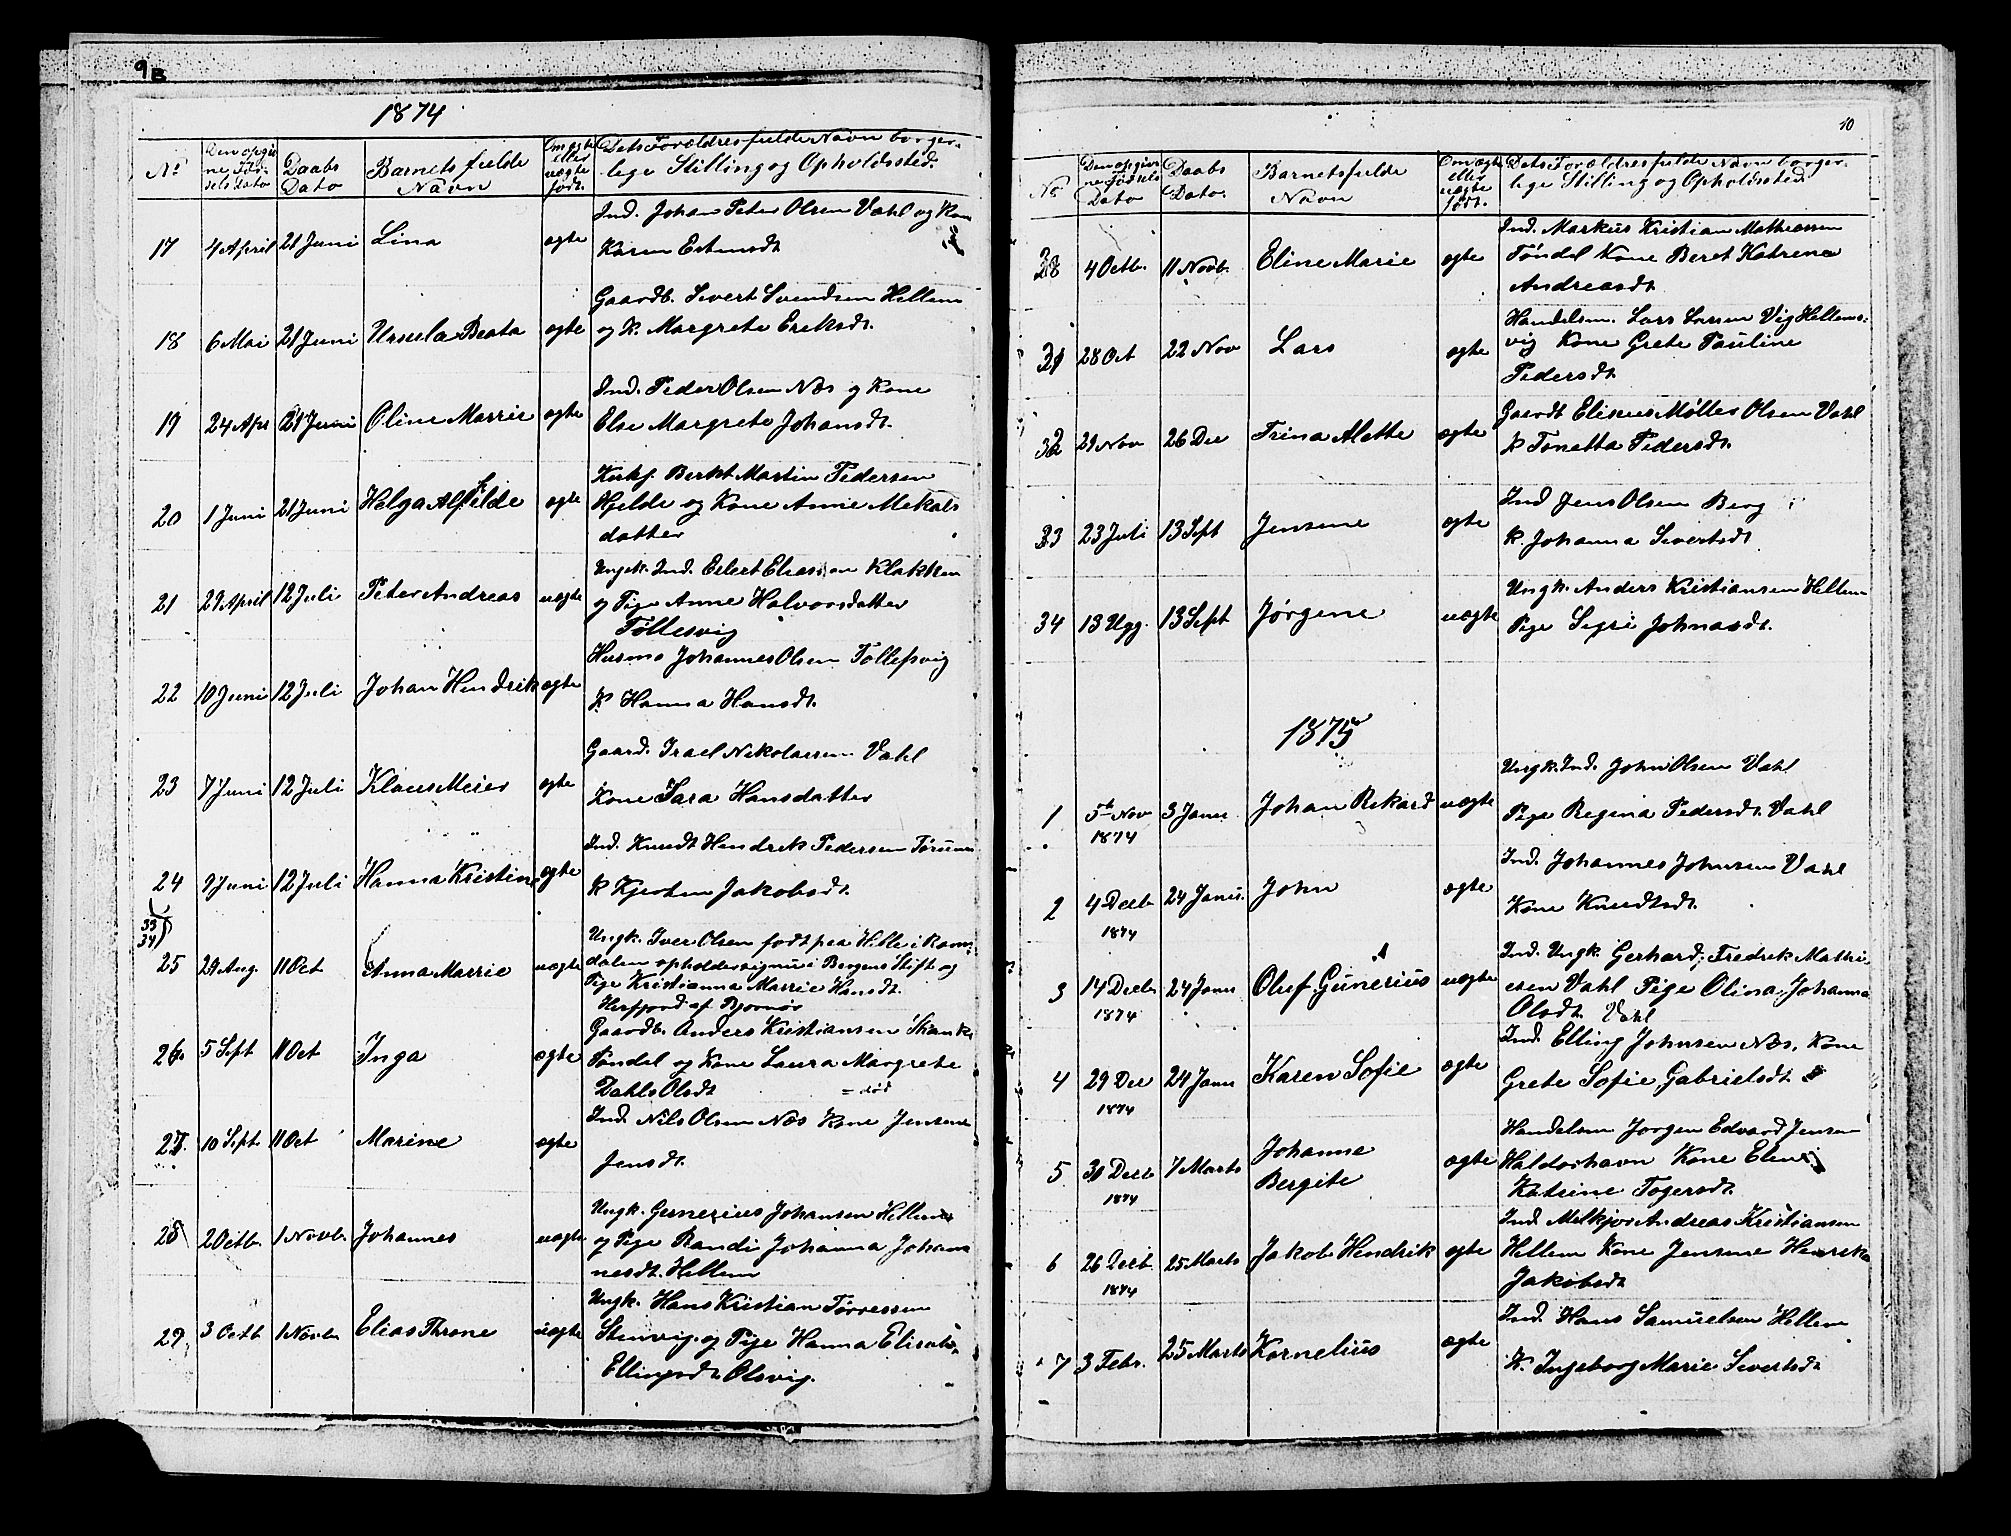 9B
1874
No
Den opgiv
ne Föd
sels dato
Daabs
Dato
Barnets fulde
Navn
Om ægte
eller
uægte
født.
Dets Forældres fulde Navn borger-
lige Stilling og Opholdssted.
17 4 April 21 Juni Lina ægte
Ind. Johan Peter Olsen Vahl og Kone
Karen Estensdt
18 6 Mai 21 Juni Ursula Beata ægte
Gaardb. Sivert Svendsen Hellem
og K. Margrete Eriksdt.
19 24 Apr 21 Juni Oline Marrie ægte
Ind. Peder Olsen Næs og Kone
Else Margrete Johansdt.
20 1 Juni 21 Juni Helga Alfhilde ægte
Kirkj. Martin Pedersen
Hjelde og Kone Anne Mekals
datter
21 29 April 12 Juli Peter Andreas uægte
Ungk. Ind. Eilert Eliassen Klakken
og Pige Anne Halvorsdatter
Föllesvig
22 10 Juni 12 Juli Johan Hendrik ægte
Husm Johannes Olsen Follesvig
K Hanna Hansdt.
23 7 Juni 12 Juli Klaus Meier ægte
Gaard. Israel Nikolaissen Vahl
Kone Sara Hansdatter
24 9 Juni 12 Juli Hanna Kristine ægte
Ind. Knudt Hendrek Pedersen
K Kjersten Jakobsdt.
33
34
25 29 Aug. 11 Oct Anna Marrie uægte
Ungk. Iver Olsen født paa Hille i Roms-
dalen opholder sig nu i Bergens Stift og
Pige Kristianna Marrie Hansdt.
Herfjord af Bjørnör
26 5 Sept 11 Oct Inga ægte
Gaardb. Anders Kristiansen Skanke
Tøndel og Kone Laura Margrete
Dahls Olsdt = død
27 10 Sept 11 Oct Marine ægte
Ind. Nils Olsen Næs Kone Jensine
Jensdt.
28 2 Octb. 1 Novb. Johannes uægte
Ungk. Gunerius Johansen Hellem
og Pige Randi Johanna Johan
nesdt. Hellem
29 3 Octb 1 Novb Elias Throne uægte
Ungk. Hans Kristian Tørressen
Stenvig og Pige Hanna Elisab.
Ellingsdt. Olsvig.
10
No
Den opgiv
ne Fødsels
Dato
Daabs
Dato.
Barnets fulde
Navn
Om ægte
eller
uægte
født.
Dets Forældres fulde Navn borger-
lige Stilling og Opholdssted.
4 Octb. 11 Novb. Eline Marie ægte
Ind. Markus Kristian Mathiassen
Tøndel Kone Beret Katrena
Andreasdt
31 28 Oct 22 Nov Lars ægte
Handelsm. Lars Larsen Vig Hellems-
vig Kone Grete Pauline
Pedersdt.
32 29 Nov 26 Dec Trina Mette ægte
Gaardt Eliseus Møller Olsen Vahl
K Tonetta Pedersdt.
33 23 Juli 13 Sept Jensine ægte
Ind Jens Olsen Berg
K. Johanna Sivertsdt
34 13 Ugg. 13 Sept Jørgine uægte
Ungk. Anders Kristiansen Hellem
Pige Sigri Johnasdt.
1875
1 5te Nov 3 Janu Johan Rikard uægte
1874
Ungk. Ind. John Olsen Vahl
Pige Regina Pedersdt. Vahl
2 4 Decb 24 Janu. John ægte
1874
Ind. Johannes Johnsen Vahl
Kone Knudtsdt.
3 14 Decb 24 Janu Oluf Gunerius uægte
1874
Ind. Ungk. Gerhard Fredrek Mathi-
esen Vahl Pige Olina Johanna
Olsdt Vahl
4 29 Dec 24 Janu Karen Sofie ægte
1874
Ind. Elling Johnsen Næs. Kone
Grete Sofie Gabrielsdt
5 30 Decb 7 Marts Johanne ægte
1874 Bergite
Handelsm Jørgen Edvard Jensen
Haldorhavn Kone Elen
Katrine Togersdt.
6 26 Decb 25 Marts Jakob Hendrik ægte
1874
Ind. Melkjor Andreas Kristiansen
Hellem Kone Jensine Henrika
Jakobsdt
7 3 Febr. 25 Marts Kornelius ægte
Ind. Hans Samuelsen Hellem
K. Ingeborg Marie Sivertsdt